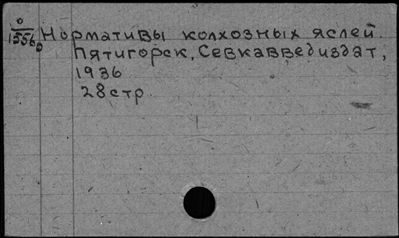 0
15560
Нормативы колхозных яслей.
Пятигорск, Севкавведиздат,
1936
28 стр